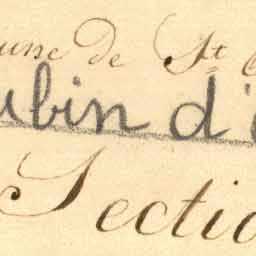 une de St
ubin d'
Sectio